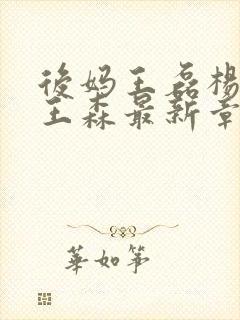 後妈王磊杨
王森最新章
華如筝